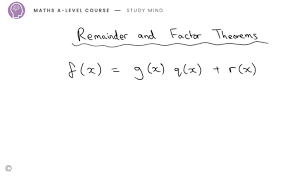 MATHS A-LEVEL COURSE — STUDY MIND
Remainder and Factor Theorems
f(x) = g(x) q(x) + r(x)
©